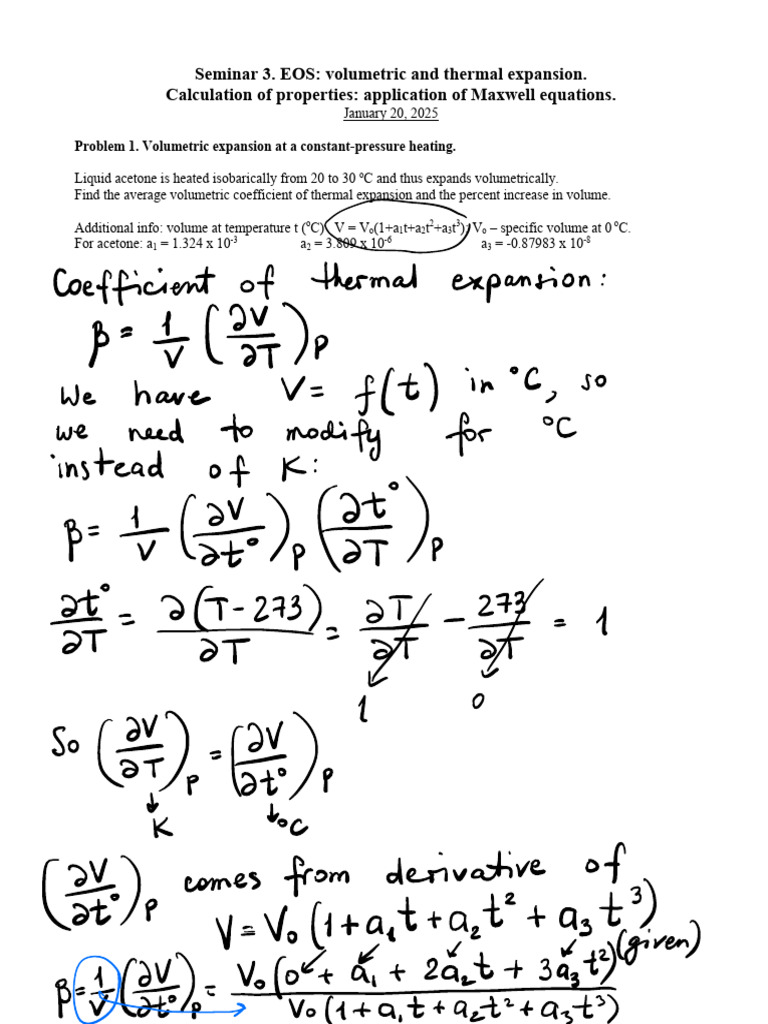 Seminar 3. EOS: volumetric and thermal expansion.
Calculation of properties: application of Maxwell equations.
January 20, 2025
Problem 1. Volumetric expansion at a constant-pressure heating.
Liquid acetone is heated isobarically from 20 to 30 ⁰C and thus expands volumetrically.
Find the average volumetric coefficient of thermal expansion and the percent increase in volume.
Additional info: volume at temperature t (⁰C) V = V₀(1+a₁t+a₂t²+a₃t³), V₀ – specific volume at 0 ⁰C.
For acetone: a₁ = 1.324 x 10⁻³ a₂ = 3.809 x 10⁻⁶ a₃ = -0.87983 x 10⁻⁸
Coefficient of thermal expansion:
β = 1/V (∂V/∂T)P
We have V = f(t) in °C, so
we need to modify for °C
instead of K:
β = 1/V (∂V/∂t°)P (∂t°/∂T)P
∂t°/∂T = ∂(T-273)/∂T = ∂T/∂T - 273/∂T = 1
1 0
So (∂V/∂T)P = (∂V/∂t°)P
K °C
(∂V/∂t°)P comes from derivative of
V = V₀ (1+a₁t+a₂t² + a₃t³)
(given)
β = 1/V (∂V/∂t°)P = V₀(0 + a₁ + 2a₂t + 3a₃t²) / V₀(1+a₁t+a₂t²+a₃t³)